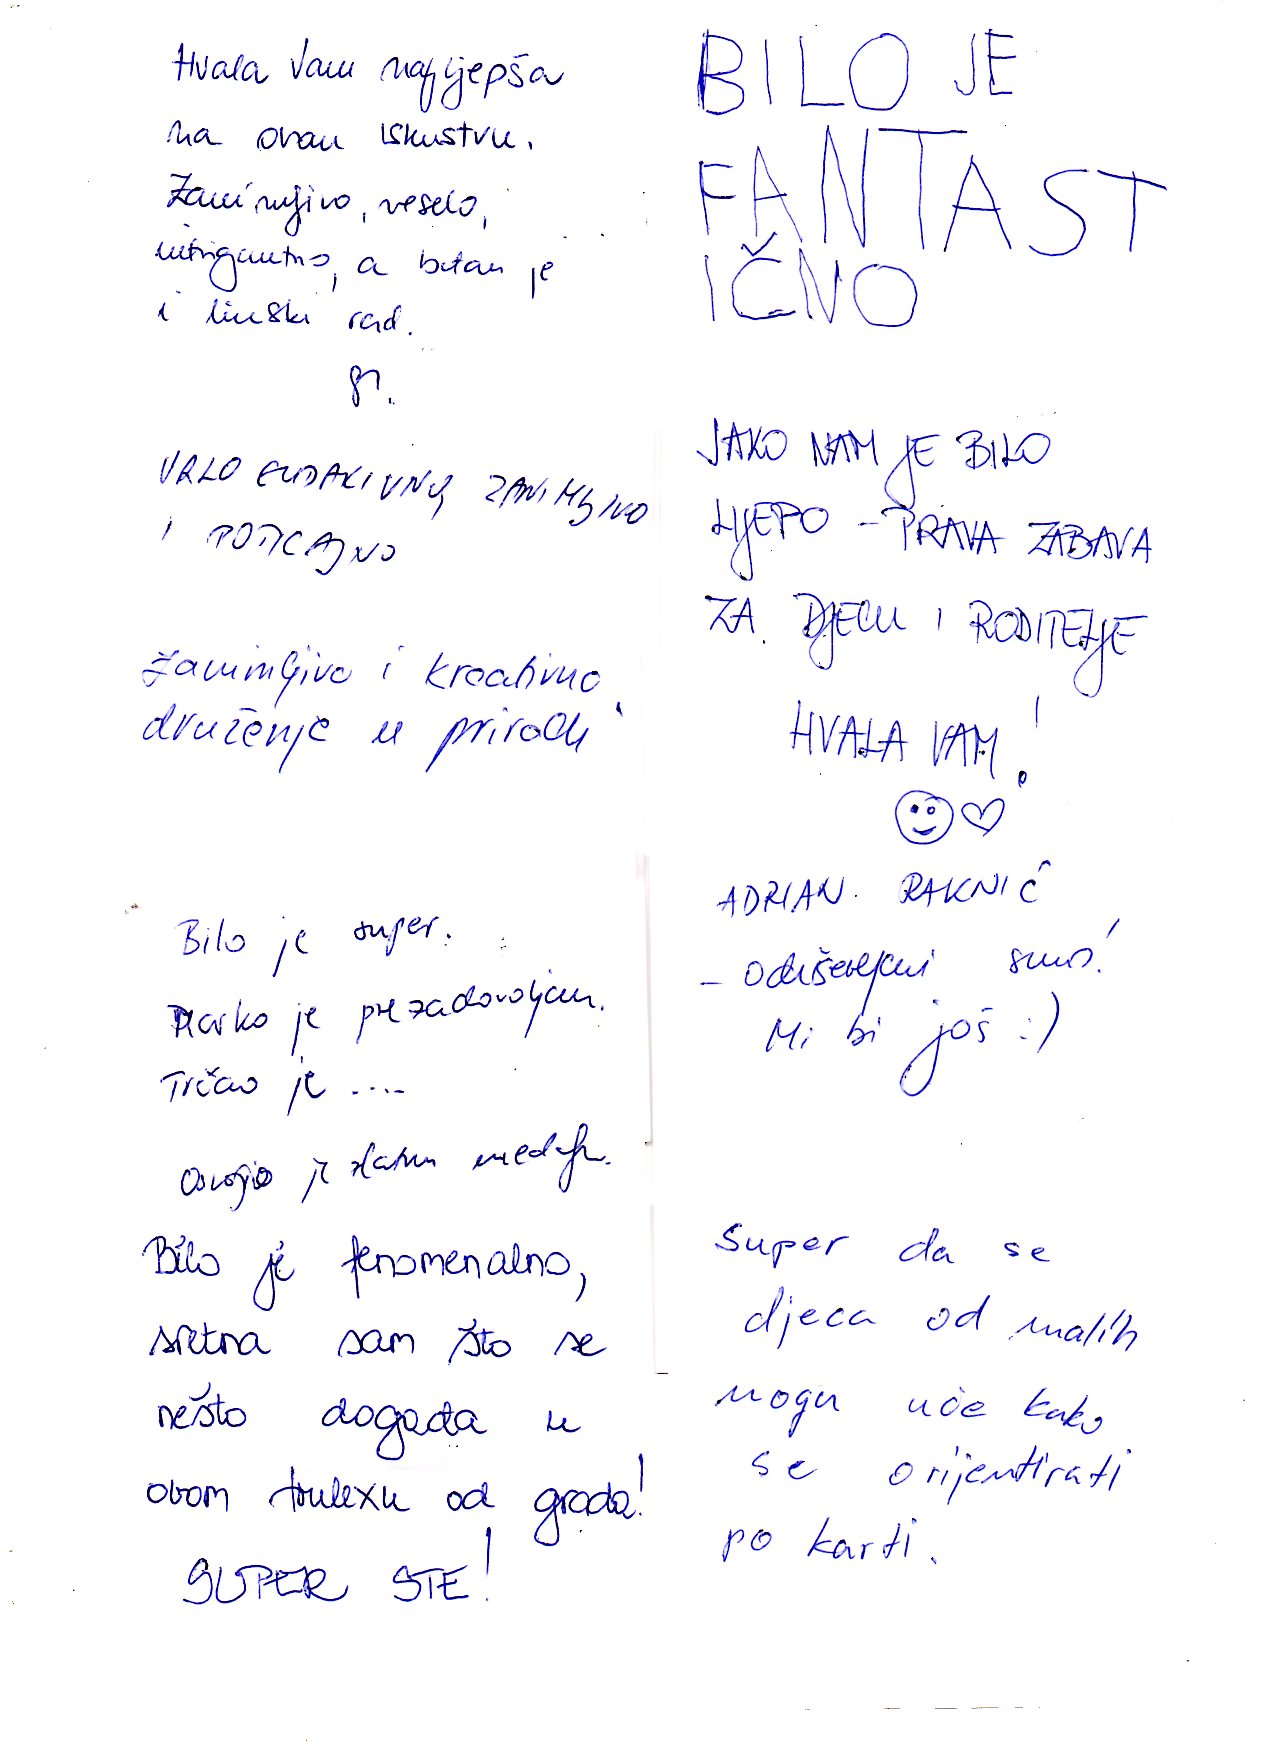 Hvala Vam najljepša
na ovom iskustvu.
Zanimljivo, veselo,
intrigantno, a bitan je
i timski rad.
VRLO ZANIMLJIVO
I POTICAJNO
Zanimljivo i kreativno
druženje u prirodi
Bilo je super.
Marko je prezadovoljan.
Trčao je ....
Osvojio je zlatnu medalju.
Bilo je fenomenalno,
sretna sam što se
nešto događa u
ovom od grada!
SUPER STE!
BILO JE
FANTAST
IČNO
JAKO NAM JE BILO
LIJEPO - PRAVA ZABAVA
ZA DJECU I RODITELJE
HVALA VAM!
ADRIAN RAKNIĆ
- Oduševljeni smo!
Mi bi još :)
Super da se
djeca od malih
nogu uče kako
se orijentirati
po karti.